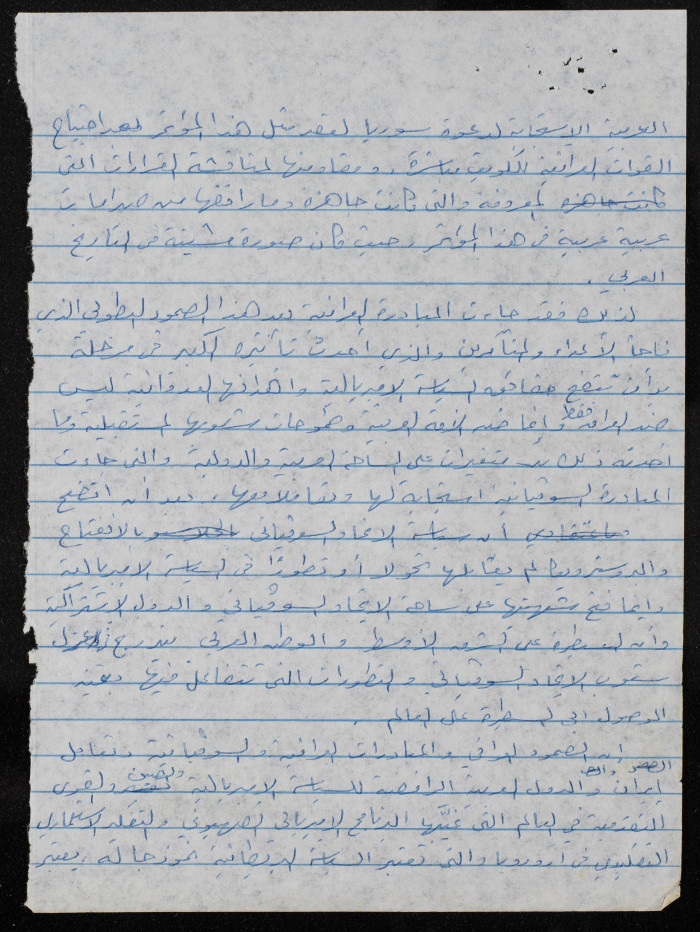 العربية الاستجابة لدعوة سوريا لعقد مثل هذا المؤتمر بعد اجتياح
القوات العراقية الكويت مباشرة، ومقاومتها لمناقشة القرارات التي
كانت جاهزة المعروفة والتي كانت جاهزة وما رافقها من صدامات
عربية عربية في هذا المؤتمر، حيث كان صورة مشينة في التاريخ
العربي.
لذلك فقد جاءت المبادرة العراقية بعد هذا الصمود البطولي الذي
فاجأ الأعداء والمتآمرين والذي أحدث تأثيره الكبير في مرحلة
بدأت تتضح حقائق السياسة الامبريالية واهدافها العدوانية ليس
ضد العراق فقط وإنما ضد الامة العربية وطموحات شعوبها المستقبلية وما
احدثه ذلك من متغيرات على الساحة العربية والدولية والتي جاءت
المبادرة السوفياتية استجابة لها وتفاعلا معها، بعد أن اتضح
أن سياسة الاتحاد السوفياتي بالانفتاح
والبروسترويكا لم يقابلها تحولا أو تطورًا في السياسة الامبريالية
وإنما فتح شهيتها على ساحة الاتحاد السوفياتي والدول الاشتراكية
وأن السيطرة على الشرق الأوسط والوطن العربي سيدرج
شعوب الاتحاد السوفياتي والتطورات التي تتفاعل فيها بغية
الوصول الى السيطرة على العالم.
إن الصمود العراقي والمبادرات العراقية والسوفياتية وتفاعل
إيران والدول العربية الرافضة للسياسة الامبريالية والصين والقوى
التقدمية في العالم التي البرنامج الامبريالي الصهيوني والفكر الاستعماري
التقليدي في أوروبا والتي تعتبر السياسة البريطانية نموذجا له، يعتبر